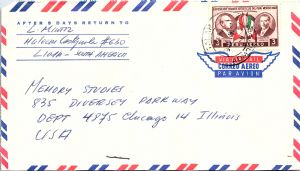 AFTER 5 DAYS RETURN TO
L. Mintz
LIMA - SOUTH AMERICA
3
3
VIA AIR MAIL
CORREO AEREO
PAR AVION
MEMORY STUDIES
835 DIVERSEY PARKWAY
DEPT 4875 Chicago 14 Illinois
USA